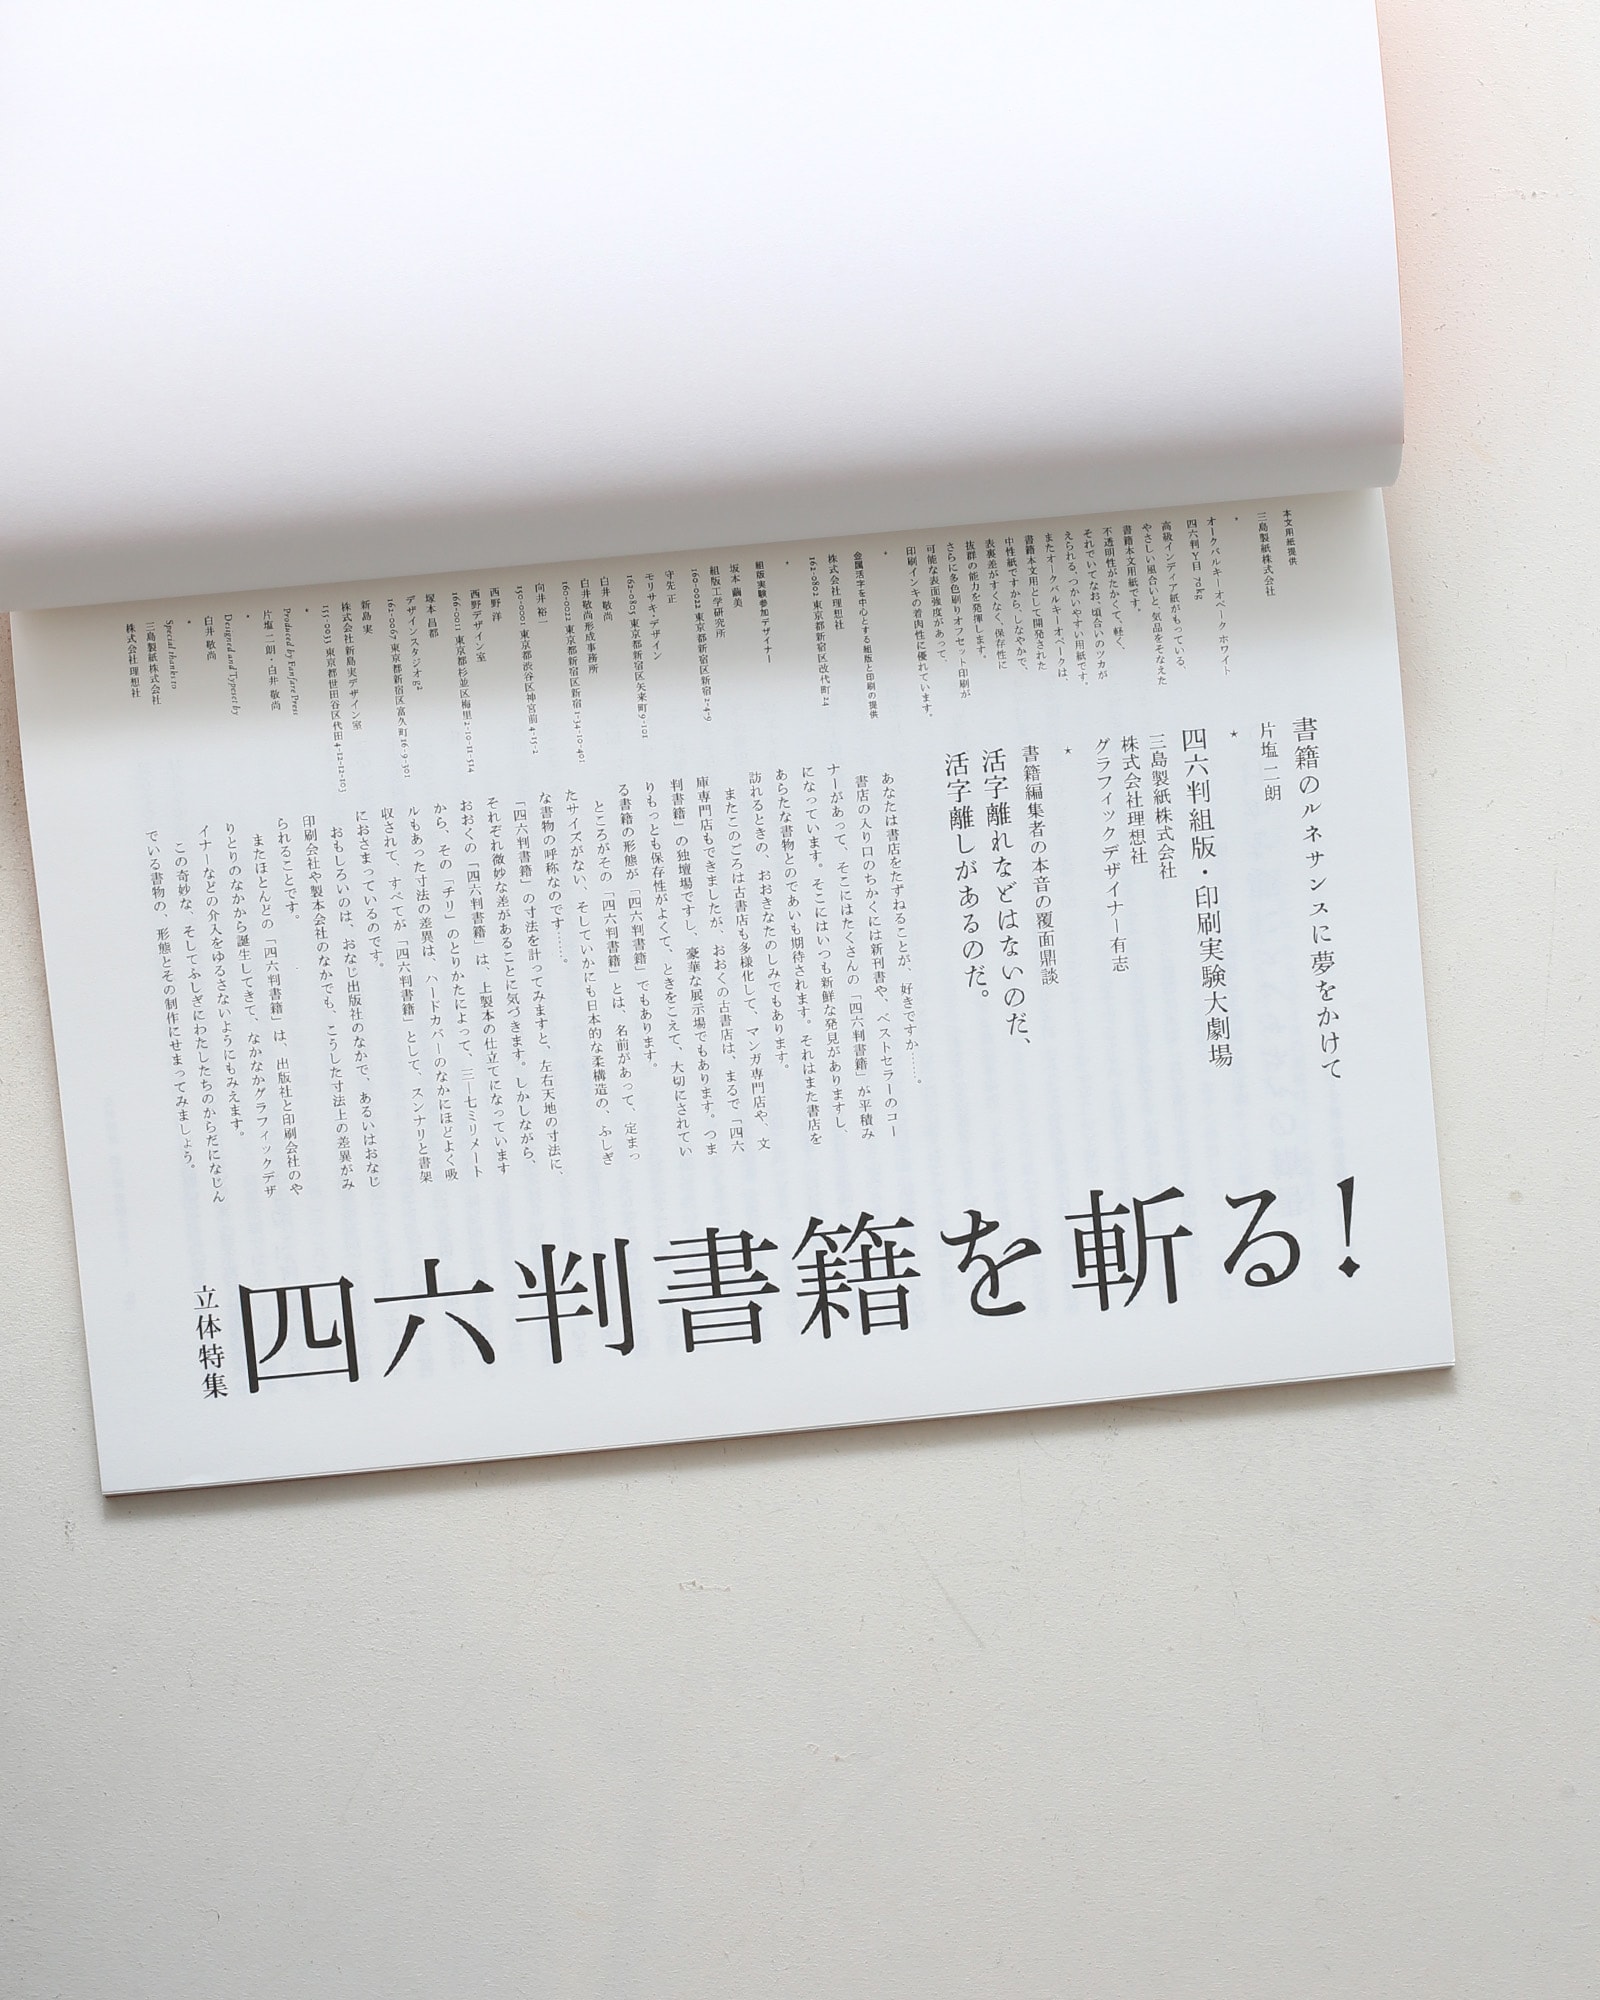 立体特集
四六判書籍を斬る!
書籍のルネサンスに夢をかけて
片塩 二朗
*
四六判組版・印刷実験大劇場
三島製紙株式会社
株式会社理想社
グラフィックデザイナー有志
*
書籍編集者の本音の覆面鼎談
活字離れなどはないのだ、
活字離しがあるのだ。
あなたは書店をたずねることが、好きですか……。
書店の入り口のちかくには新刊書や、ベストセラーのコー
ナーがあって、そこにはたくさんの「四六判書籍」が平積み
になっています。そこにはいつも新鮮な発見がありますし、
あらたな書物とのであいも期待されます。それはまた書店を
訪れるときの、おおきなたのしみでもあります。
またこのごろは古書店も多様化して、マンガ専門店や、文
庫専門店もできましたが、おおくの古書店は、まるで「四六
判書籍」の独壇場ですし、豪華な展示場でもあります。つま
りもっとも保存性がよくて、ときをこえて、大切にされてい
る書籍の形態が「四六判書籍」でもあります。
ところがその「四六判書籍」とは、名前があって、定まっ
たサイズがない、そしていかにも日本的な柔構造の、ふしぎ
な書物の呼称なのです……。
「四六判書籍」の寸法を計ってみますと、左右天地の寸法に、
それぞれ微妙な差があることに気づきます。しかしながら、
おおくの「四六判書籍」は、上製本の仕立てになっています
から、その「チリ」のとりかたによって、三—七ミリメート
ルもあった寸法の差異は、ハードカバーのなかにほどよく吸
収されて、すべてが「四六判書籍」として、スンナリと書架
におさまっているのです。
おもしろいのは、おなじ出版社のなかで、あるいはおなじ
印刷会社や製本会社のなかでも、こうした寸法上の差異がみ
られることです。
またほとんどの「四六判書籍」は、出版社と印刷会社のや
りとりのなかから誕生してきて、なかなかグラフィックデザ
イナーなどの介入をゆるさないようにもみえます。
この奇妙な、そしてふしぎにわたしたちのからだになじん
でいる書物の、形態とその制作にせまってみましょう。
本文用紙提供
三島製紙株式会社
*
オークバルキーオペーク ホワイト
四六判Y目 70kg
高級インディア紙がもっている、
やさしい風合いと、気品をそなえた
書籍本文用紙です。
不透明性がたかくて、軽く、
それでいてなお、頃合いのツカが
えられる、つかいやすい用紙です。
またオークバルキーオペークは、
書籍本文用として開発された
中性紙ですから、しなやかで、
表裏差がすくなく、保存性に
抜群の能力を発揮します。
さらに多色刷りオフセット印刷が
可能な表面強度があって、
印刷インキの着肉性に優れています。
*
金属活字を中心とする組版と印刷の提供
株式会社 理想社
162-0802 東京都新宿区改代町24
*
組版実験参加デザイナー
坂本 繭美
組版工学研究所
160-0022 東京都新宿区新宿 2-4-9
守先 正
モリサキデザイン
162-0805 東京都新宿区矢来町 9-101
白井 敬尚
白井敬尚形成事務所
160-0022 東京都新宿区新宿 1-34-10-401
向井 裕一
150-0001 東京都渋谷区神宮前 4-15-2
西野 洋
西野デザイン室
166-0011 東京都杉並区梅里 2-10-11-514
塚本 昌都
デザインスタジオg2
162-0067 東京都新宿区富久町 16-9-501
新島 実
株式会社新島実デザイン室
155-0033 東京都世田谷区代田 4-12-12-103
*
Produced by Fanfare Press
片塩 二朗・白井 敬尚
*
Designed and Typeset by
白井 敬尚
*
Special thanks to
三島製紙株式会社
株式会社理想社